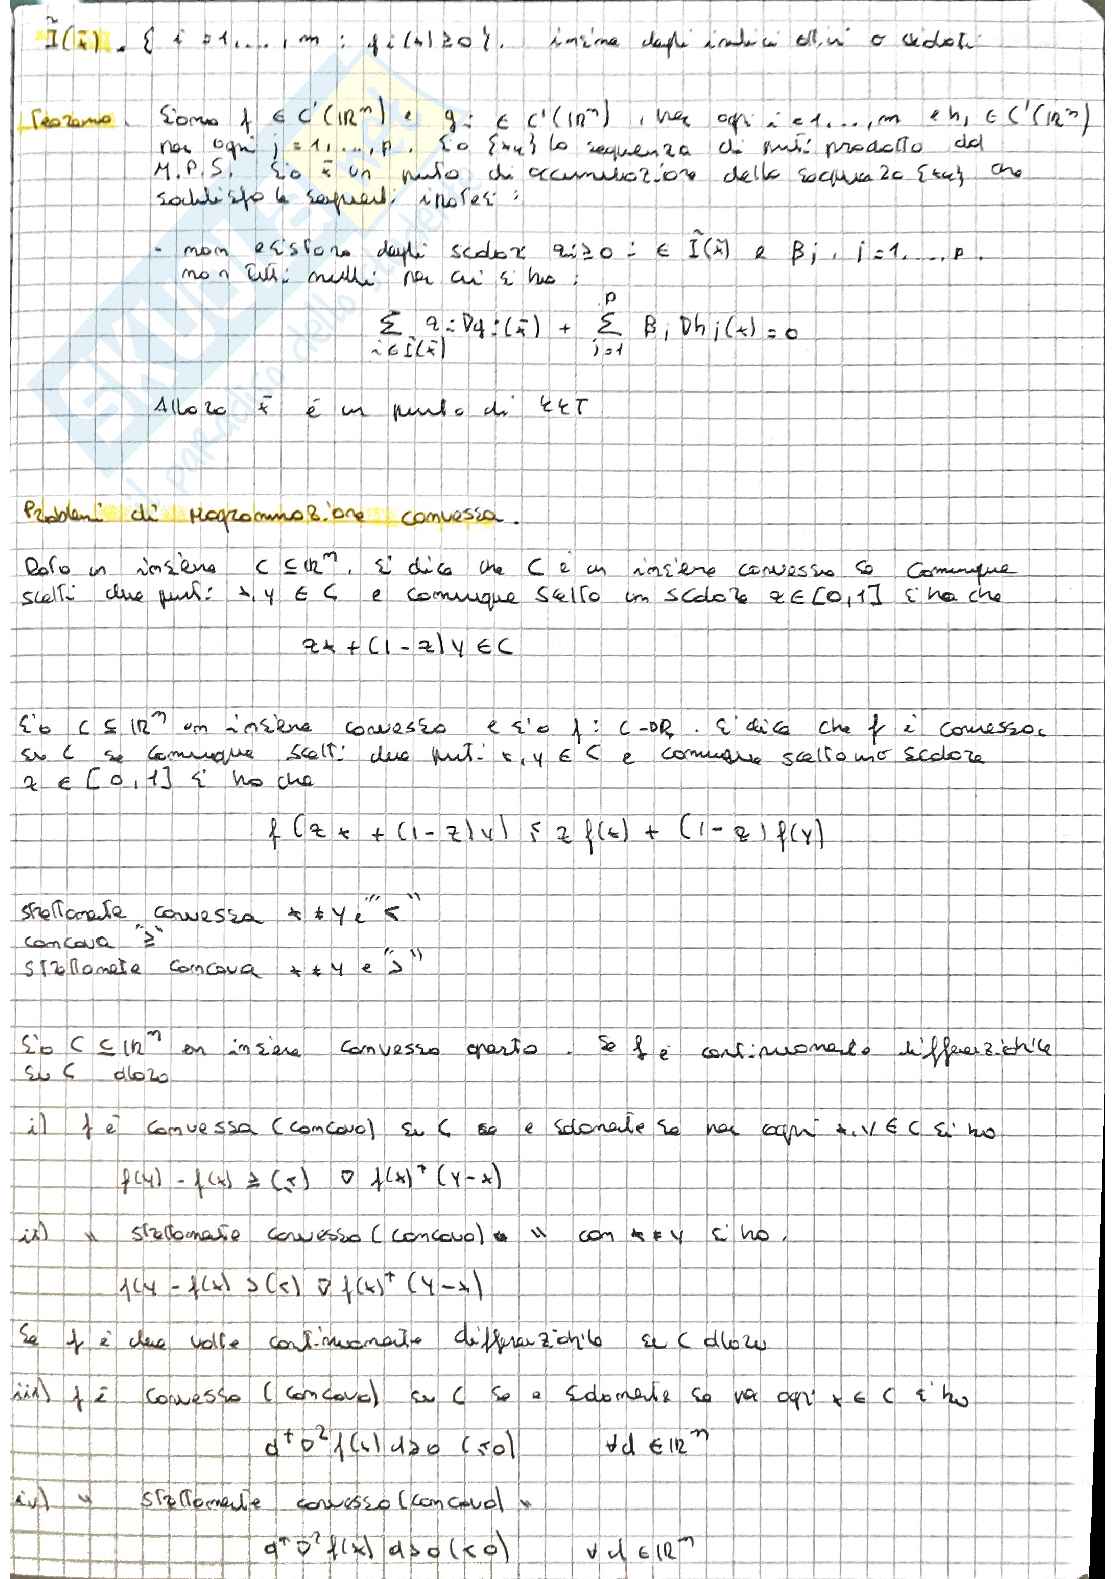 Ĩ(x̄) = { i = 1, ..., m : gi(x) ≥ 0 }. insieme degli indici attivi o violati
Teorema. Siano f ∈ C'(ℝⁿ) e gi ∈ C'(ℝⁿ), per ogni i = 1, ..., m e hj ∈ C'(ℝⁿ)
per ogni j = 1, ..., p. Sia {xk} la sequenza di punti prodotta dal
M.P.S. Sia x̄ un punto di accumulazione della sequenza {xk} che
soddisfa le seguenti ipotesi:
- non esistono degli scalari ai ≥ 0 i ∈ Ĩ(x̄) e βj, j = 1, ..., p.
non tutti nulli per cui si ha:
∑ ai ∇gi(x̄) + ∑ βj ∇hj(x) = 0
i∈Ĩ(x̄) j=1 p
Allora x̄ è un punto di KKT
Problemi di Programmazione convessa.
Dato un insieme C ⊆ ℝⁿ, si dice che C è un insieme convesso se comunque
scelti due punti x, y ∈ C e comunque scelto un scalare z ∈ [0,1] si ha che
zx + (1-z)y ∈ C
Sia C ⊆ ℝⁿ un insieme convesso e sia f: C→ℝ. Si dice che f è convessa
su C se comunque scelti due punti x, y ∈ C e comunque scelto uno scalare
z ∈ [0,1] si ha che
f(zx + (1-z)y) ≤ z f(x) + (1-z) f(y)
strettamente convessa x ≠ y e "<"
concava "≥"
strettamente concava x ≠ y e ">"
Sia C ⊆ ℝⁿ un insieme convesso aperto. Se f è continuamente differenziabile
su C allora
i) f è convessa (concava) su C se e solamente se per ogni x, y ∈ C si ha
f(y) - f(x) ≥ (≤) ∇f(x)ᵀ (y-x)
ii) " strettamente convessa (concava) " con x ≠ y si ha.
f(y - f(x) > (<) ∇f(x)ᵀ (y-x)
Se f è due volte continuamente differenziabile su C allora
iii) f è convessa (concava) su C se e solamente se per ogni x ∈ C si ha
dᵀ∇²f(x) d ≥ 0 (≤0) ∀d ∈ ℝⁿ
iv) " strettamente convessa (concava) "
dᵀ∇²f(x) d > 0 (<0) ∀d ∈ ℝⁿ